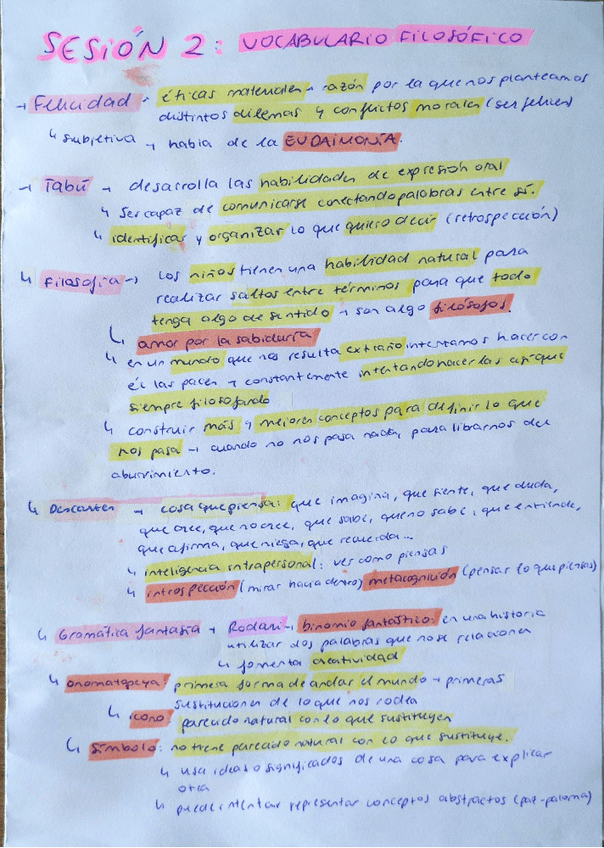 SESIÓN 2: VOCABULARIO FILOSÓFICO
→ Felicidad → éticas materiales → razón por la que nos planteamos
distintos dilemas y conflictos morales (ser felices)
↳ subjetiva → habla de la EUDAIMONÍA.
→ Tabú → desarrolla las habilidades de expresión oral
↳ ser capaz de comunicarse conectando palabras entre sí.
↳ identificar y organizar lo que quiero decir (retrospección)
↳ Filosofía → los niños tienen una habilidad natural para
realizar saltos entre términos para que todo
tenga algo de sentido → son algo filósofos.
↳ amor por la sabiduría
↳ en un mundo que nos resulta extraño intentamos hacer con
él las paces → constantemente intentando hacerlas así que
siempre filosofando
↳ construir más y mejores conceptos para definir lo que
nos pasa → cuando no nos pasa nada, para librarnos del
aburrimiento.
↳ Descartes → cosa que piensa: que imagina, que siente, que duda,
que cree, que no cree, que sabe, que no sabe, que entiende,
que afirma, que niega, que recuerda...
↳ inteligencia intrapersonal: ver como piensas
↳ introspección (mirar hacia dentro) metacognición (pensar lo que piensas)
↳ Gramática fantasía → Rodari → binomio fantástico: en una historia
utilizar dos palabras que no se relacionen
↳ fomenta creatividad
↳ onomatopeya: primera forma de andar el mundo → primeras
sustituciones de lo que nos rodea
↳ icono: parecido natural con lo que sustituyen
↳ símbolo: no tiene parecido natural con lo que sustituye.
↳ usa ideas o significados de una cosa para explicar
otra
↳ puede intentar representar conceptos abstractos (paz-paloma)